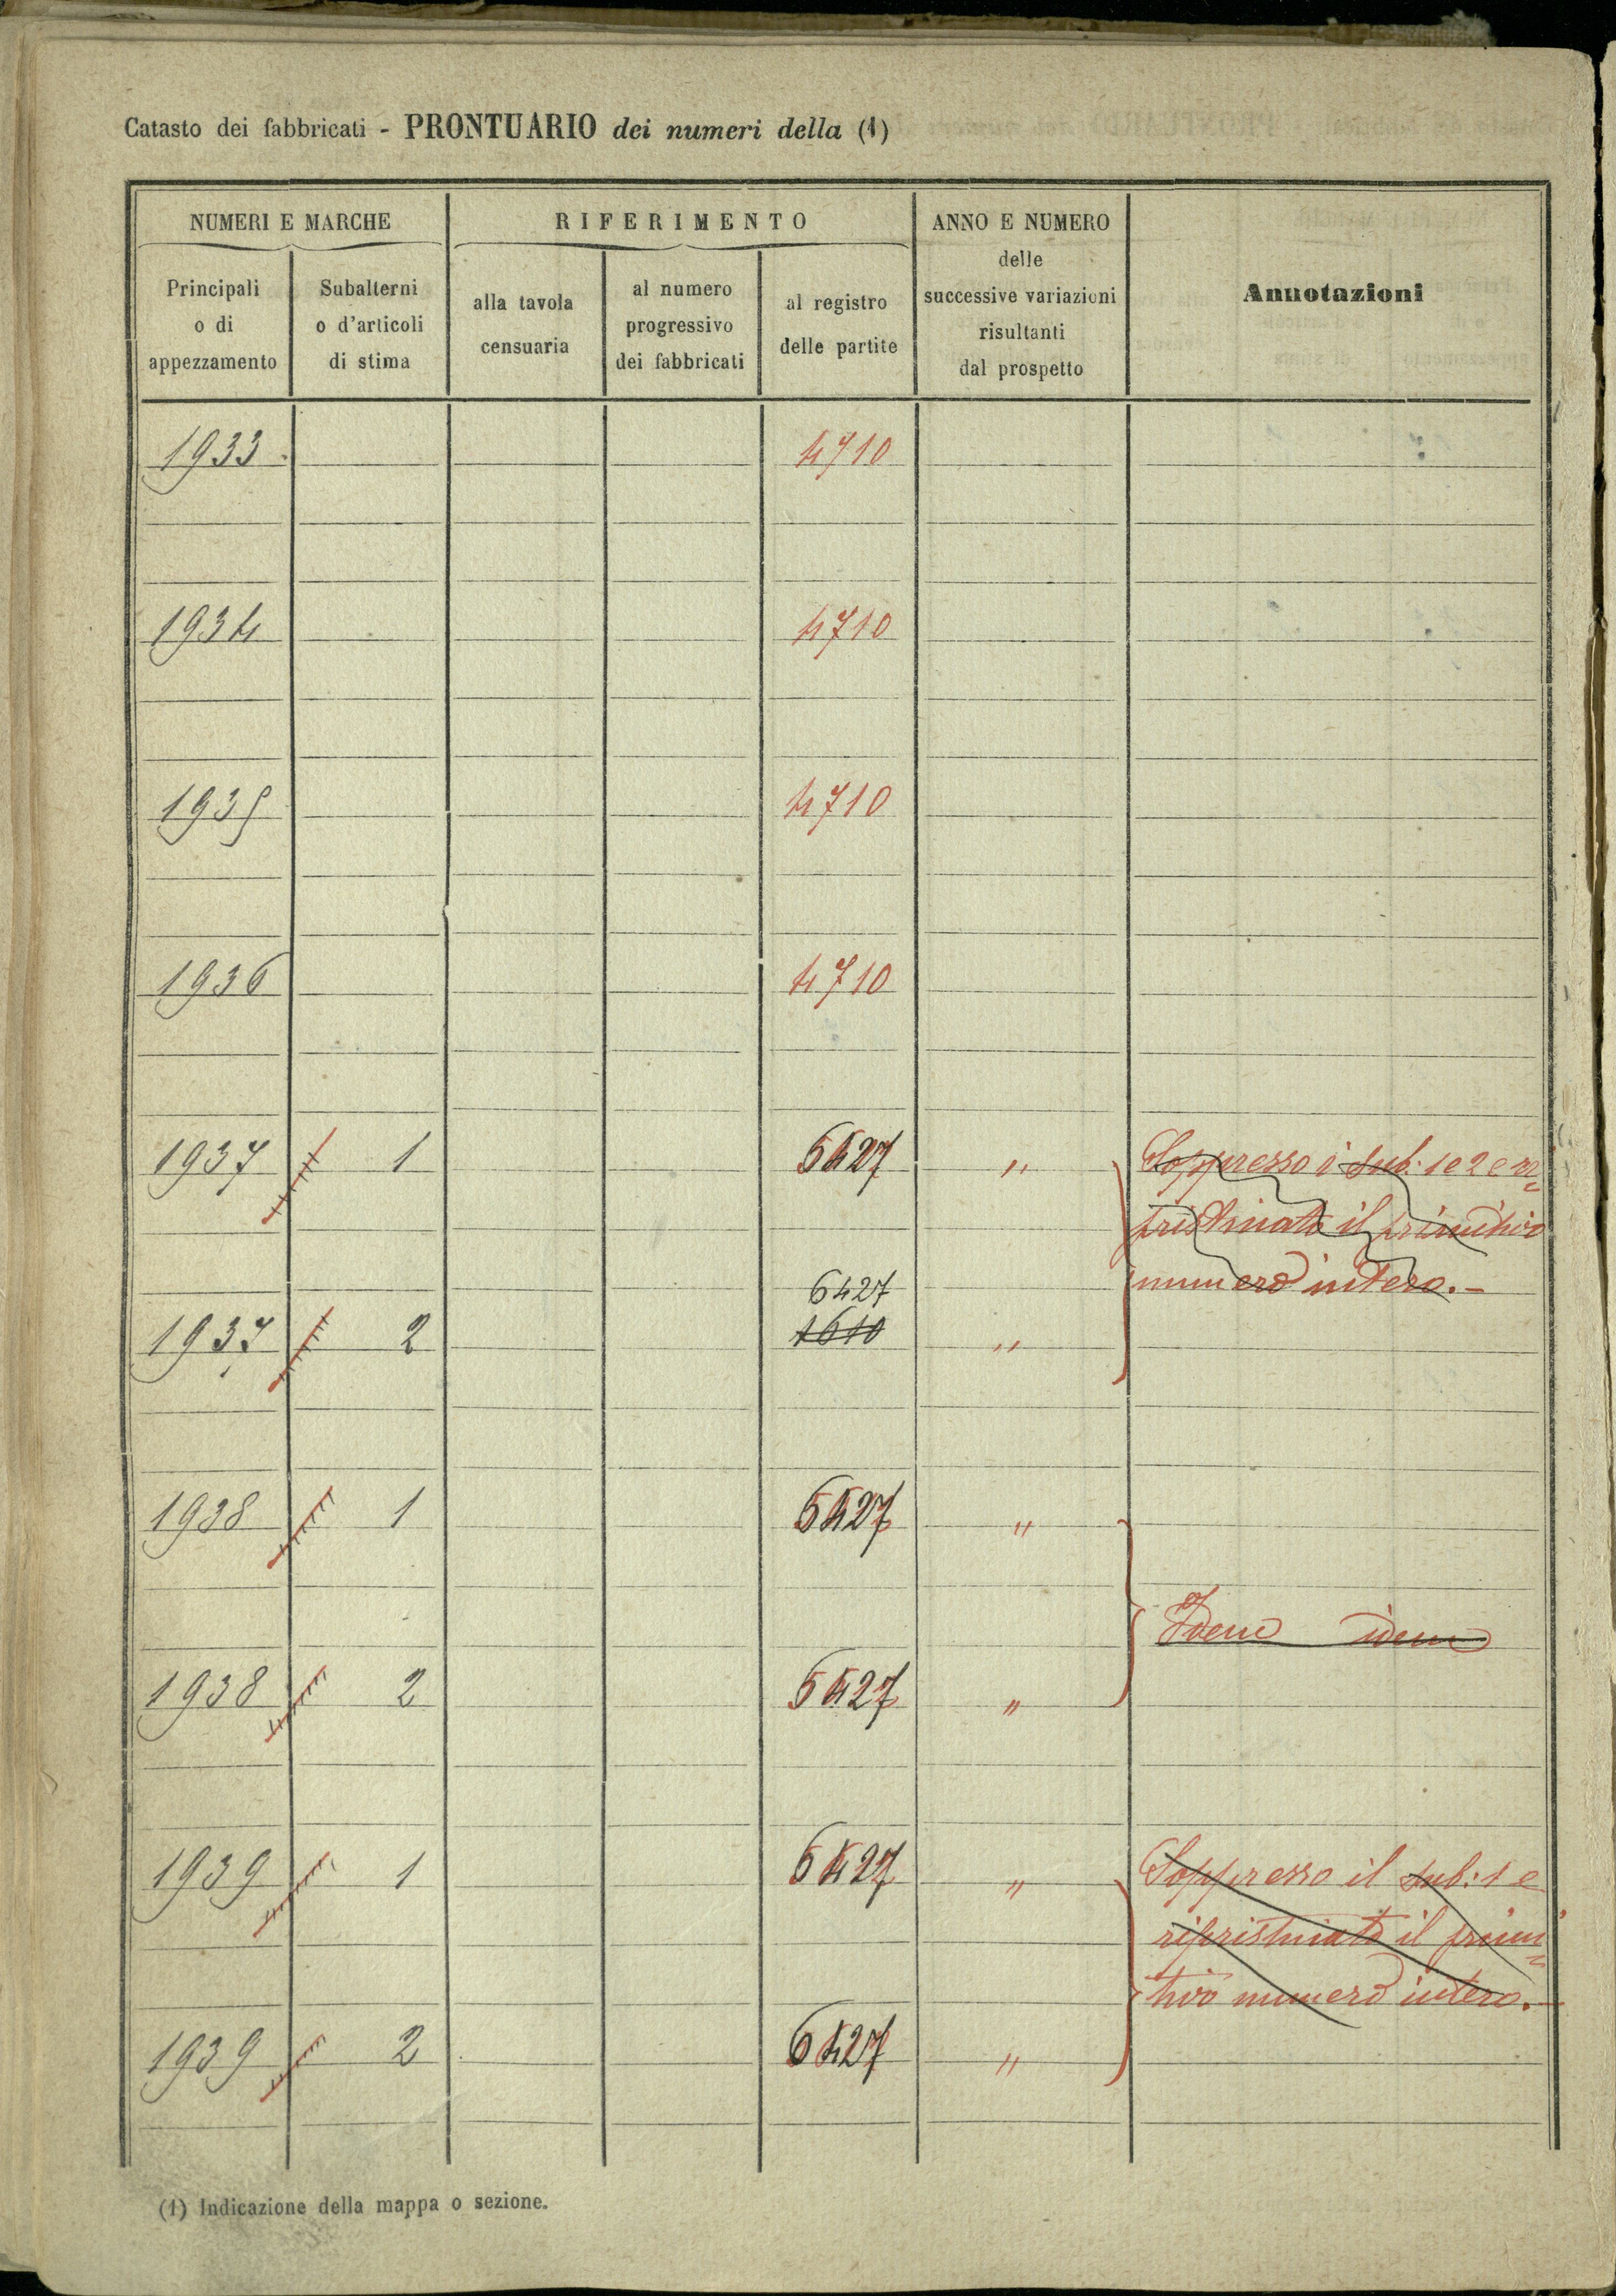 Catasto dei fabbricati - PRONTUARIO dei numeri della (1)
NUMERI E MARCHE
RIFERIMENTO
ANNO E NUMERO
delle
successive variazioni
risultanti
dal prospetto
Annotazioni
Principali
o di
appezzamento
Subalterni
o d'articoli
di stima
alla tavola
censuaria
al numero
progressivo
dei fabbricati
al registro
delle partite
1933 4710
1934 4710
1935 4710
1936 4710
1937 1 6427 " Soppresso i sub: 1 e 2 e ri=
pristinato il primitivo
6427 numero intero. -
1937 2 1610 "
1938 1 6427 "
Idem idem
1938 2 6427 "
1939 1 6427 " Soppresso il sub: 1 e
ripristinato il primi=
tivo numero intero. -
1939 2 6427 "
(1) Indicazione della mappa o sezione.